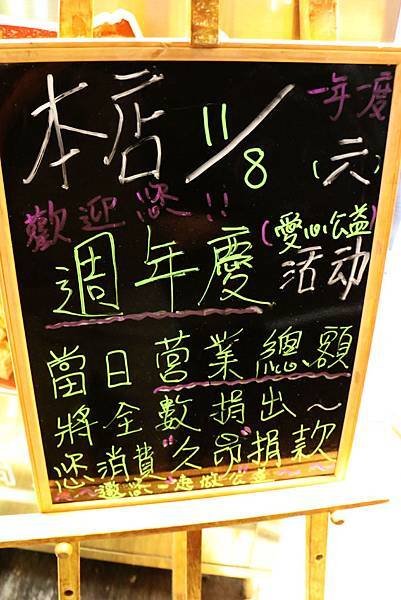 一年一度
本店 11/8 (六)
歡迎您!!
(愛心公益)
週年慶 活动
當日营業總額
將全數捐出~
您消費"久昂"捐款
~邀您一起做公益~